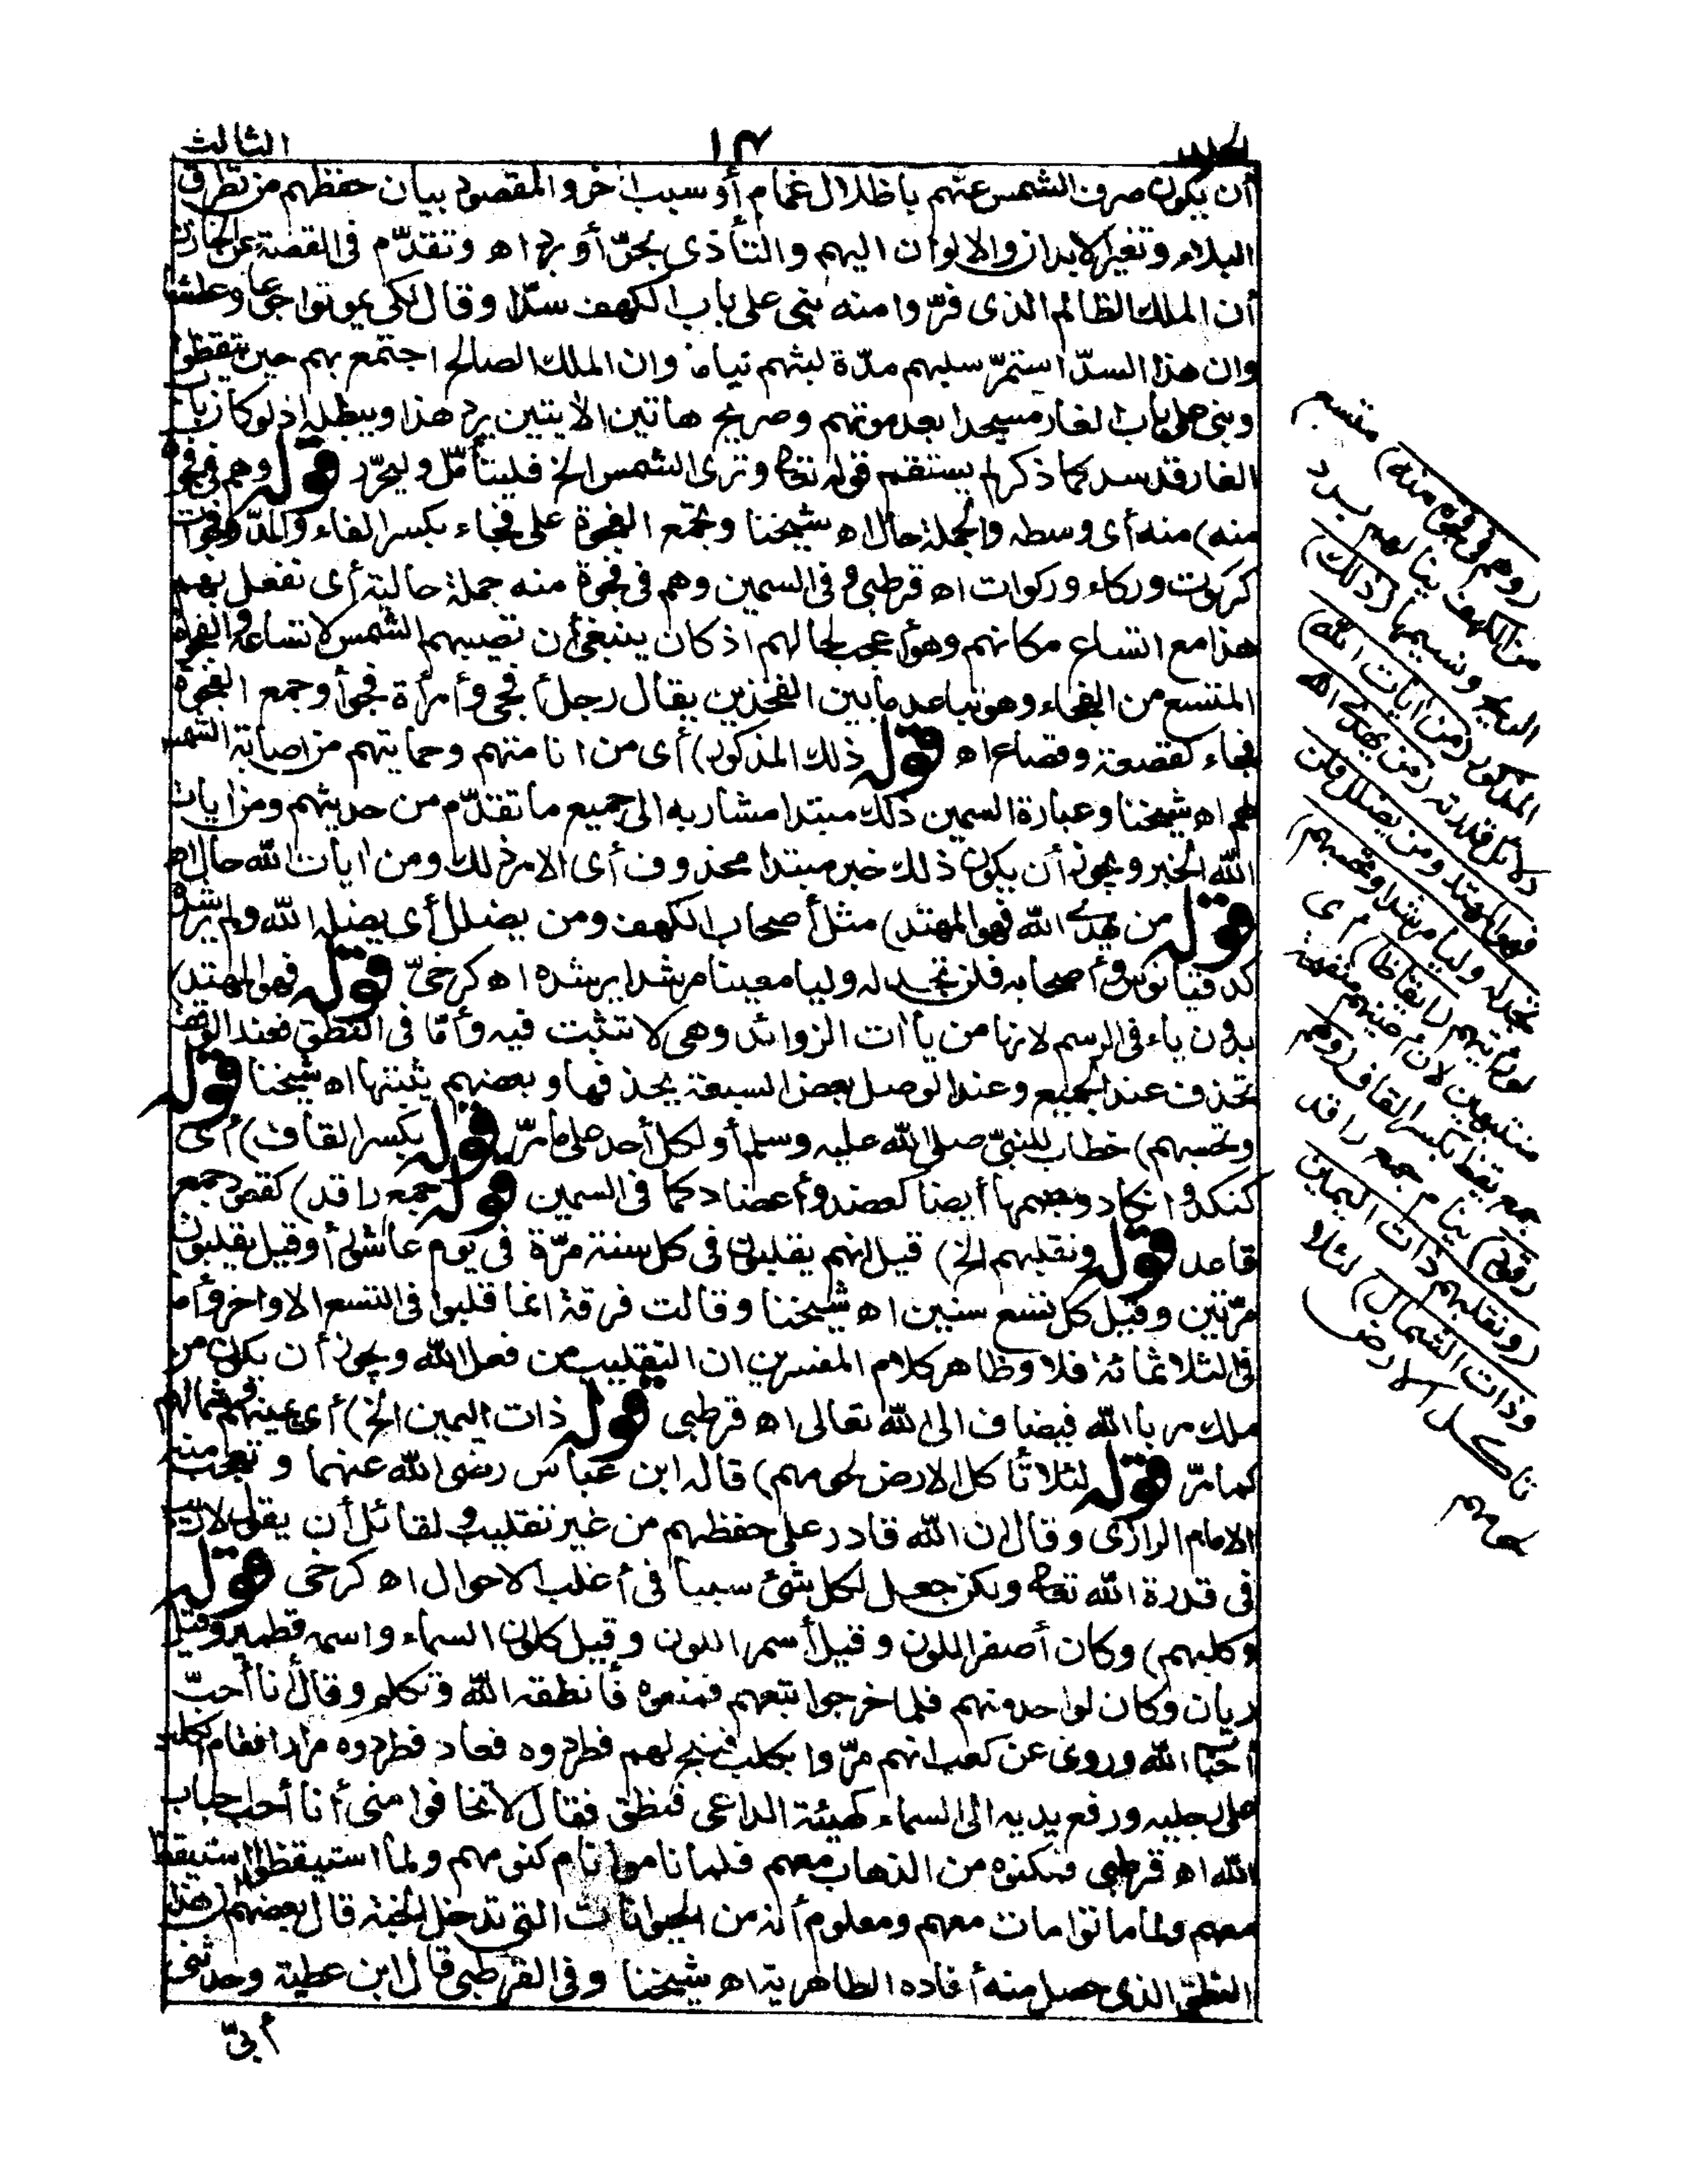 الجزء ١٣ الثالث
أن يكون صرف الشمس عنهم باظلال غمام أو سبب اخر والمقصود بيان حفظهم من تطرق
البلاء وتغير الابدان والالوان اليهم والتأذى بحرّ أو برد اه وتقدّم فى القصة عن الخازن
أن الملك الظالم الذى فرّوا منه بنى على باب الكهف سدّا وقال لكى يموتوا جوعا وعطشا
وان هذا السدّ استمرّ عليهم مدّة لبثهم نياما وان الملك الصالح اجتمع بهم حين تيقظوا
وبنى على باب الغار مسجدا بعد موتهم وصريح هاتين الايتين يرد هذا ويبطله اذ لو كان باب
الغار قد سد كما ذكر لم يستقم قوله تعالى وترى الشمس الخ فليتأمّل وليحرّر قوله وهم فى فجوة
منه) منه أى وسطه والجملة حال اه شيخنا وتجمع الفجوة على فجاء بكسر الفاء والمدّ وفجوات
كركوت وركاء وركوات اه قرطبى وفى السمين وهم فى فجوة منه جملة حالية أى نفعل بهم
هذا مع اتساع مكانهم وهو أعجب لحالهم اذ كان ينبغى أن تصيبهم الشمس لاتساعه والفجوة
المتسع من الفجاء وهو تباعد ما بين الفخذين يقال رجل أفجى وأمرأة فجوأ وجمع الفجوة
فجاء كقصعة وقصاع اه قوله ذلك المذكور) أى من انامتهم وحمايتهم من اصابة الشمس
لهم اه شيخنا وعبارة السمين ذلك مبتدا مشار به الى جميع ما تقدّم من حديثهم ومن ايات
الله الخبر ويجوز أن يكون ذلك خبر مبتدا محذوف أى الامر ذلك ومن ايات الله حال اه
قوله من يهدى الله فهو المهتد) مثل أصحاب الكهف ومن يضلل أى يضله الله ولم يرشده
كدقيانوس وأصحابه فلن تجد له وليا معينا مرشدا يرشده اه كرخىّ قوله فهو المهتد)
بدون ياء فى الرسم لانها من ياأت الزوائد وهى لا تثبت فيه وأمّا فى النطق فعند الوقف
تحذف عند الجميع وعند الوصل بعض السبعة يحذفها وبعضهم يثبتها اه شيخنا قوله
وتحسبهم) خطاب للنبىّ صلى الله عليه وسلم أو لكل أحد على ما مرّ قوله بكسر القاف) أى
كنكد وانكاد وبضمها أيضا كعضد وأعضاد كما فى السمين قوله جمع راقد) كقعود جمع
قاعد قوله ونقلبهم الخ) قيل انهم يقلبون فى كل سنة مرّة فى يوم عاشوراء وقيل يقلبون
مرّتين وقيل كل تسع سنين اه شيخنا وقالت فرقة انما قلبوا فى التسع الاواخر وأما
فى الثلاثمائة فلا وظاهر كلام المفسرين ان التقليب من فعل الله ويجوز أن يكون من
ملك مر بأمر الله فيضاف الى الله تعالى اه قرطبى قوله ذات اليمين الخ) أى يمينهم وشمالهم
كما مرّ قوله لئلا تأكل الارض لحومهم) قاله ابن عباس رضى الله عنهما وتعجب منه
الامام الرازى وقال ان الله قادر على حفظهم من غير تقليب ولقائل أن يقول لا ريب
فى قدرة الله تعالى ولكن جعل لكل شئ سببا فى أغلب الاحوال اه كرخى قوله
وكلبهم) وكان أصفر اللون وقيل أسمر اللون وقيل كلون السماء واسمه قطمير وقيل
ريان وكان لواحد منهم فلما خرجوا تبعهم فمنعوه فأنطقه الله وتكلم وقال أنا أحبّ
أحباء الله وروى عن كعب انهم مرّوا بكلب فنبح لهم فطردوه فعاد فطردوه مرارا فقام الكلب
على رجليه ورفع يديه الى السماء كهيئة الداعى فنطق فقال لا تخافوا منى أنا أحب أحباب
الله اه قرطبى فمكنوه من الذهاب معهم فلما ناموا نام كنومهم ولما استيقظوا استيقظ
معهم ولما ماتوا مات معهم ومعلوم أنه من الحيوانات التى تدخل الجنة قال بعضهم ان هذا
النطق الذى حصل منه أفاده الطاهرية اه شيخنا وفى القرطبى قال ابن عطية وحدثنى
أبىّ
(وهم فى فجوة منه) متسع
من الكهف ينالهم برد
الريح ونسيمها (ذلك)
المذكور (من ايات الله)
دلائل قدرته (من يهدى الله
فهو المهتد ومن يضلل فلن
تجد له وليا مرشدا وتحسبهم)
لو رأيتهم (ايقاظا) أى
منتبهين لان أعينهم منفتحة
جمع يقظ بكسر القاف (وهم
رقود) نيام جمع راقد
(ونقلبهم ذات اليمين
وذات الشمال) لئلا
تاكل الارض
لحومهم